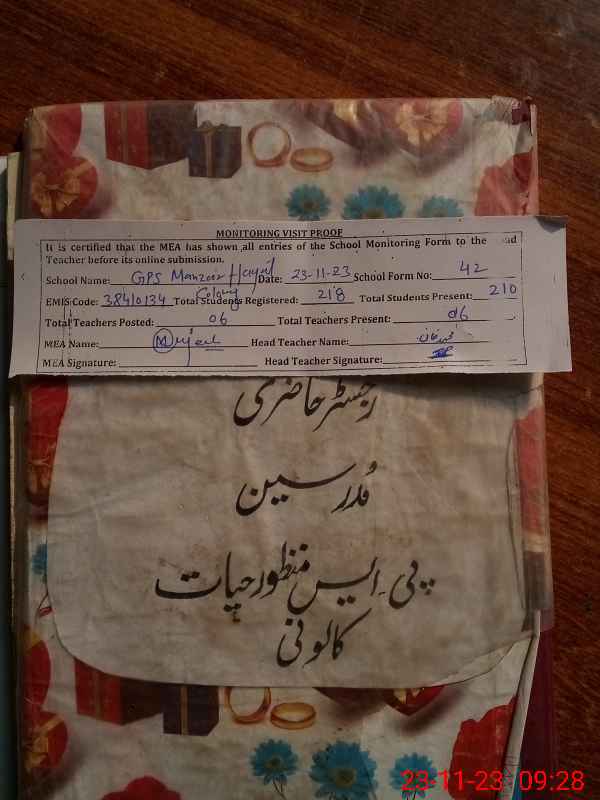 MONITORING VISIT PROOF
It is certified that the MEA has shown all entries of the School Monitoring Form to the
Teacher before its online submission.
School Name: GPS Manzoor Hayat Colony Date: 23-11-23 School Form No: 42
EMIS Code: 38410134 Total Students Registered: 218 Total Students Present: 210
Total Teachers Posted: 06 Total Teachers Present: 06
MEA Name: Head Teacher Name:
MEA Signature: Head Teacher Signature:
رجسٹر حاضری
مدرسین
پی.ایس منظور حیات
کالونی
23-11-23 09:28